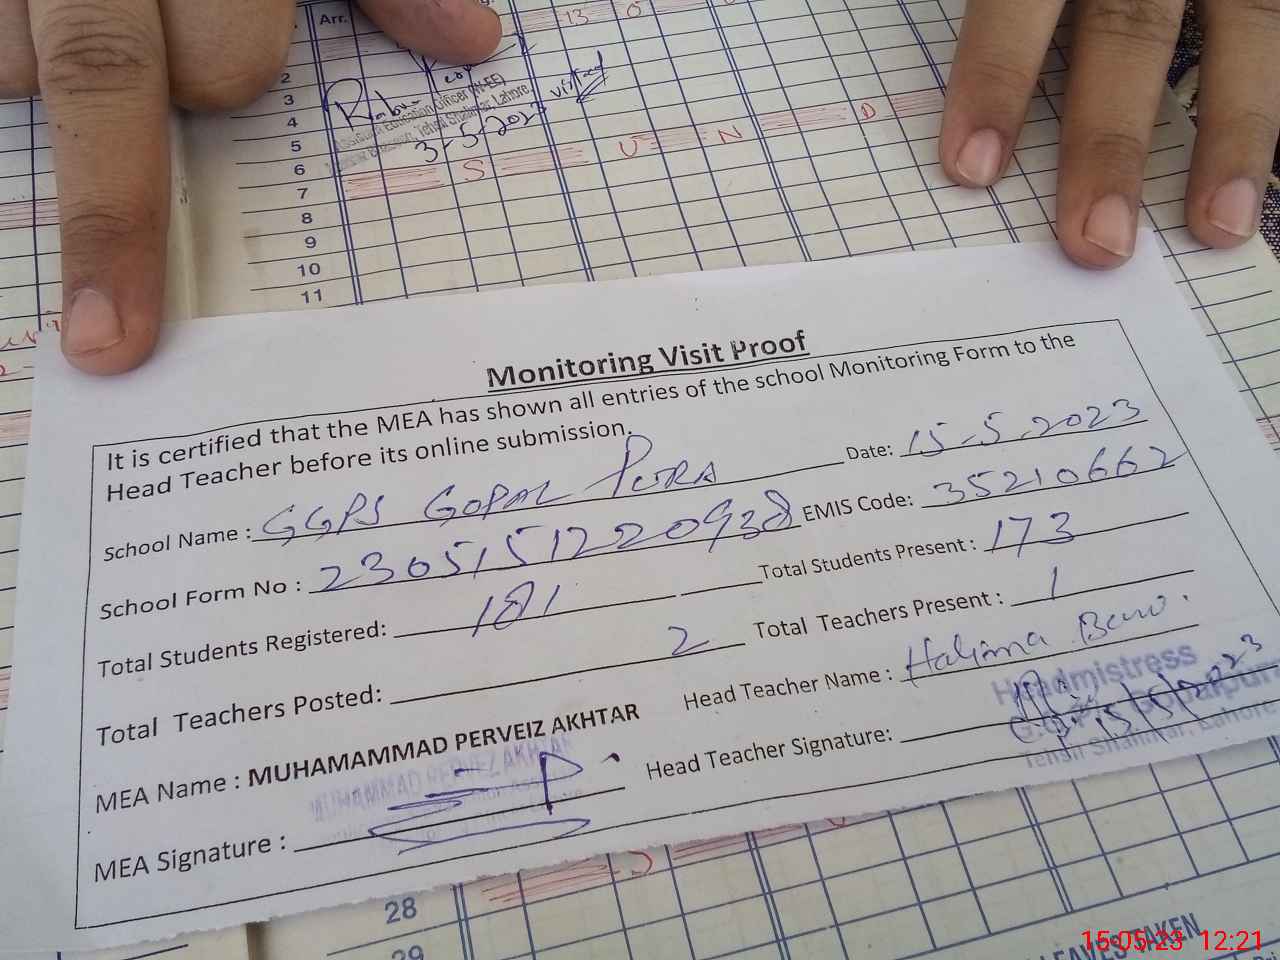 Arr.
13 0
2
3
4
5
6
7
8
9
10
11
visited
Assistant Education Officer (W-EE)
Tehsil Shalimar, Lahore.
3-5-2023
S U N D
Monitoring Visit Proof
It is certified that the MEA has shown all entries of the school Monitoring Form to the
Head Teacher before its online submission.
Date: 15-5-2023
School Name : GGPS GOPAL PURA
EMIS Code: 35210662
School Form No : 2305151220938
Total Students Present : 173
Total Students Registered: 181
Total Teachers Present : 1
Total Teachers Posted: 2
Head Teacher Name : Halima Bano.
MEA Name : MUHAMAMMAD PERVEIZ AKHTAR
Head Teacher Signature:
Headmistress
Gopalpura
Tehsil Shalimar, Lahore
15/5/2023
MUHAMMAD PERVEZ AKHTAR
MEA Signature :
S
28
29
LEAVES TAKEN
15-05-23 12:21